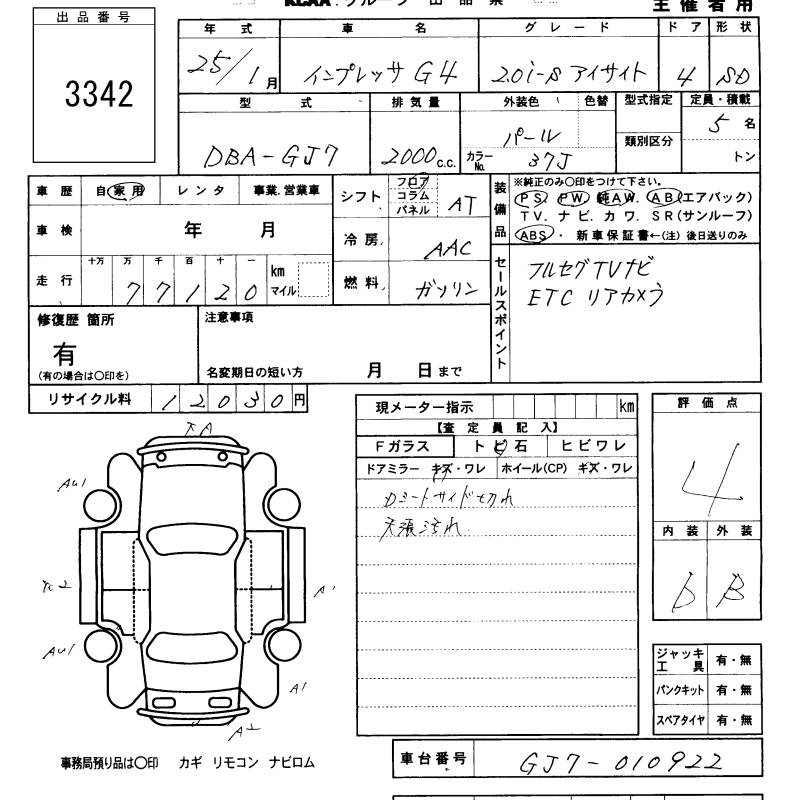 KCAA グループ 出 品 票
主 催 者 用
出 品 番 号
3342
年 式 車 名 グ レ ー ド ド ア 形 状
25/1月 インプレッサ G4 2.0i-S アイサイト 4 SD
型 式 排 気 量 外装色 色替 型式指定 定員・積載
DBA-GJ7 2000c.c. パール 5 名
カラーNo. 37J 類別区分 トン
車 歴 自家用 レ ン タ 事業.営業車
シフト フロア コラム パネル AT
装備品 ※純正のみ〇印をつけて下さい。
PS. PW. 純AW. AB(エアバッグ)
TV. ナ ビ. カ ワ. SR(サンルーフ)
ABS・ 新 車 保 証 書 ←(注) 後日送りのみ
車 検 年 月
冷 房 AAC
走 行 十万 万 千 百 十 一 km マイル
77120
燃 料 ガソリン
セールスポイント
フルセグTVナビ
ETC リアカメラ
修復歴 箇所 注意事項
有
(有の場合は〇印を) 名変期日の短い方 月 日 まで
リサイクル料 12030円
現メーター指示 km
【査 定 員 記 入】
F ガラス ト ビ 石 ヒ ビ ワ レ
ドアミラー キズ・ワレ ホイール(CP) キズ・ワレ
Dシートサイド切れ
天張汚れ
評 価 点
4
内 装 外 装
b B
ジャッキ工具 有・無
パンクキット 有・無
スペアタイヤ 有・無
AU1
A1
AU1
A1
A2
事務局預り品は〇印 カギ リモコン ナビロム
車台番号 GJ7-010922